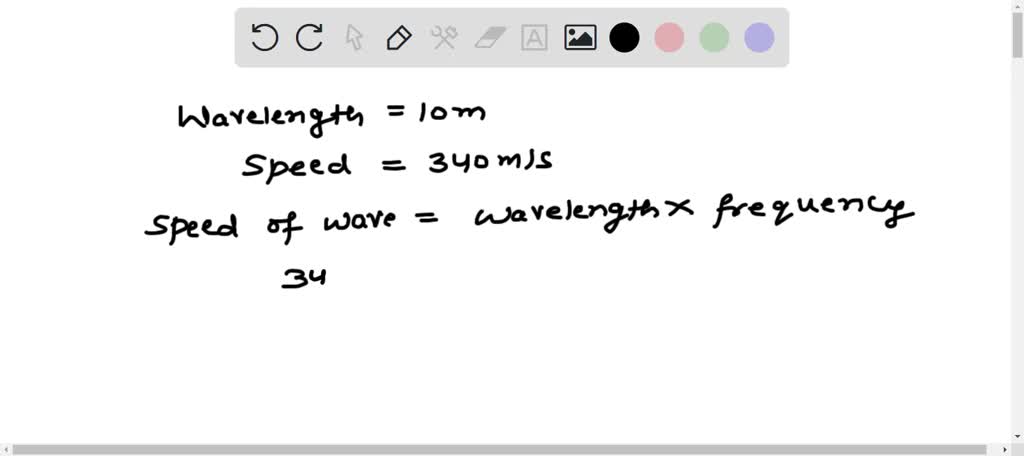 Wavelength = 10m
Speed = 340m/s
Speed of wave = wavelength × frequency
34